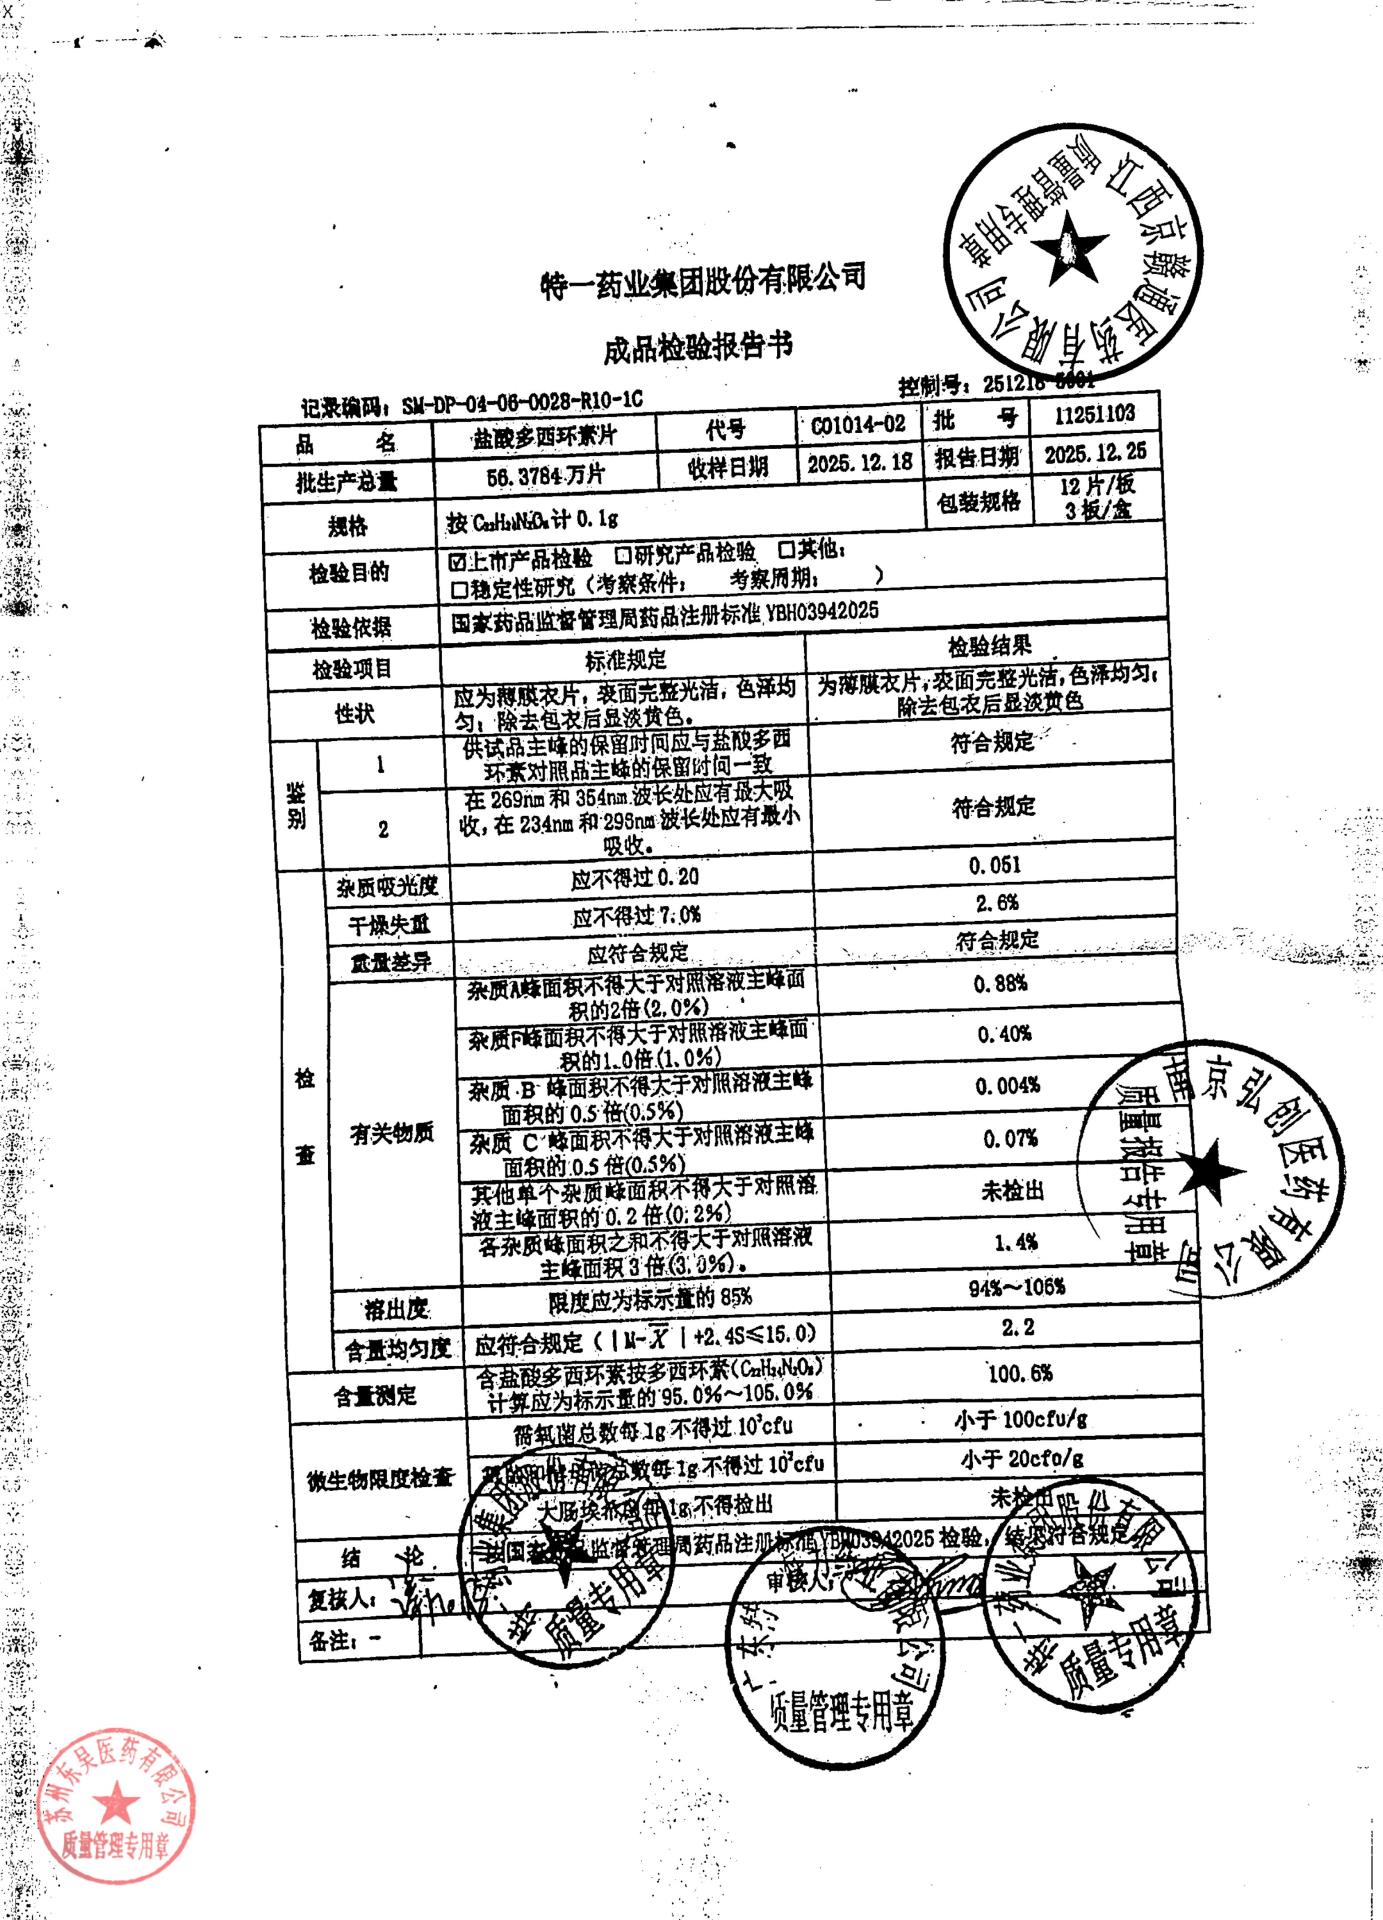 江西京赣通医药有限公司
质量管理专用章
特一药业集团股份有限公司
成品检验报告书
记录编码：SM-DP-04-06-0028-R10-1C
控制号：251218-5001
品 名 盐酸多西环素片 代号 C01014-02 批 号 11251103
批生产总量 56.3784万片 收样日期 2025.12.18 报告日期 2025.12.25
规格 按C₂₂H₂₄N₂O₈计0.1g 包装规格 12片/板
3板/盒
检验目的 ☑上市产品检验 □研究产品检验 □其他：
□稳定性研究（考察条件： 考察周期： ）
检验依据 国家药品监督管理局药品注册标准YBH03942025
检验项目 标准规定 检验结果
性状 应为薄膜衣片，表面完整光洁，色泽均 为薄膜衣片，表面完整光洁，色泽均匀；
匀；除去包衣后显淡黄色。 除去包衣后显淡黄色
鉴别
1 供试品主峰的保留时间应与盐酸多西 符合规定
环素对照品主峰的保留时间一致
2 在269nm和354nm波长处应有最大吸 符合规定
收，在234nm和295nm波长处应有最小
吸收。
检 查
杂质吸光度 应不得过0.20 0.051
干燥失重 应不得过7.0% 2.6%
质量差异 应符合规定 符合规定
有关物质
杂质A峰面积不得大于对照溶液主峰面 0.88%
积的2倍(2.0%)
杂质F峰面积不得大于对照溶液主峰面 0.40%
积的1.0倍(1.0%)
杂质 B 峰面积不得大于对照溶液主峰 0.004%
面积的0.5倍(0.5%)
杂质 C 峰面积不得大于对照溶液主峰 0.07%
面积的0.5倍(0.5%)
其他单个杂质峰面积不得大于对照溶 未检出
液主峰面积的0.2倍(0.2%)
各杂质峰面积之和不得大于对照溶液 1.4%
主峰面积3倍(3.0%)。
溶出度 限度应为标示量的85% 94%～106%
含量均匀度 应符合规定（|M-X̄|+2.4S≤15.0） 2.2
含量测定 含盐酸多西环素按多西环素(C₂₂H₂₄N₂O₈) 100.6%
计算应为标示量的95.0%～105.0%
微生物限度检查
需氧菌总数每1g不得过10³cfu 小于100cfu/g
总数每1g不得过10²cfu 小于20cfu/g
大肠埃希菌每1g不得检出 未检出
结 论 国家药品监督管理局药品注册标准YBH03942025检验，结果符合规定
复核人：
审核人：
备注：-
南京弘创医药有限公司
质量报告专用章
特一药业集团股份有限公司
质量专用章
广东特
有限公司
质量管理专用章
特一药业集团股份有限公司
质量专用章
苏州东吴医药有限公司
质量管理专用章